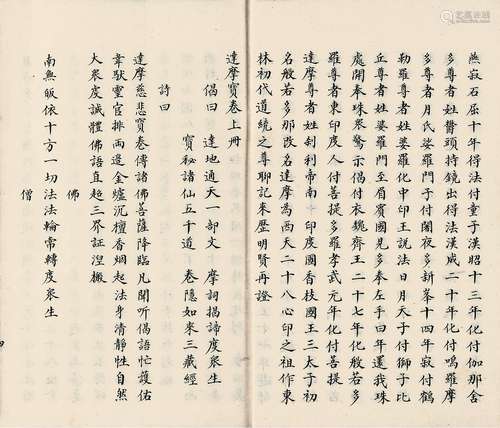 燕寂石屈十年得法付童子漢昭十三年化付伽那舍
多尊者姓鬱頭持鏡出得法漢成二十年化付鳩羅摩
多尊者月氏婆羅門子付闍夜多新莽十四年寂付鶴
勒羅尊者姓婆羅化中印王說法日月天子付獅子比
丘尊者姓婆羅門至眉賓國見多奉左手日年還我珠
處開奉珠衆驚示偈付衣魏齊王二十七年化般若多
羅尊者東印度人付菩提多羅孝武元年化付菩提
達摩尊者姓剎利帝南十印度國香枝國王三太子初
名般若多那改名達摩為西天二十八心印之祖作東
林初代道統之尊聊記來歷明賢再證
達摩寶卷上冊
偈曰 達地通天一部文 摩詞揭諦度衆生
寶秘諸仙五千道 卷隱如來三藏經
詩曰
達摩慈悲寶卷傳諸佛菩薩降臨凡聞聽偈語忙護佑
韋馱靈官排兩邊金爐沉檀香烟起法身清靜性自然
大衆度誠體佛語直超三界証湼槃
佛
南無皈依十方一切法法輪常轉度衆生
僧